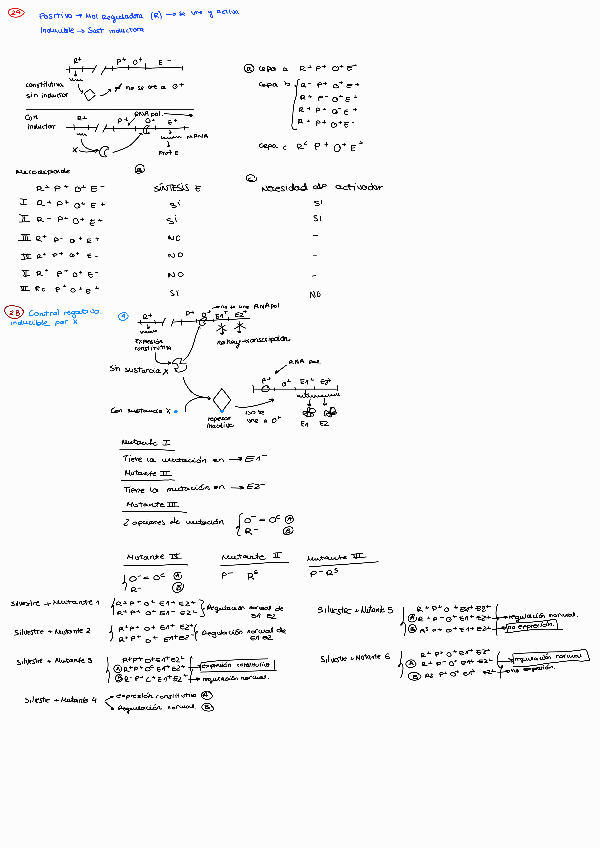 29
Positivo → Mol Reguladora (R) → se une y activa
Inducible → Sust inductora
R+ P+ O+ E-
constitutiva
sin inductor
no se une a O+
Con
inductor
R+ P+ O+ E+
RNA pol
mRNA
X
Prot E
B Cepa a R+ P+ O+ E-
Cepa b R- P+ O+ E+
R+ P- O+ E+
R+ P+ O- E+
R+ P+ O+ E-
Cepa c Rc P+ O+ E+
Merodiploide
SÍNTESIS E
C
Necesidad de activador
R+ P+ O+ E-
I R+ P+ O+ E+ SÍ SI
II R- P+ O+ E+ SÍ SI
III R+ P- O+ E+ NO -
IV R+ P+ O- E+ NO -
V R+ P+ O+ E- NO -
VI Rc P+ O+ E+ SÍ NO
28 Control negativo
inducible por X
A
R+ P+ O+ E1+ E2+
no se une RNA pol
Expresión
constitutiva
no hay transcripción
Sin sustancia X
RNA pol
P+ O+ E1+ E2+
Con sustancia X
represor
inactivo
no se
une a O+
E1 E2
Mutante I
Tiene la mutación en → E1-
Mutante II
Tiene la mutación en → E2-
Mutante III
2 opciones de mutación O- = Oc A
R- B
Mutante IV
O- = Oc A
R- B
Mutante V
P- Rs
Mutante VI
P- Rs
Silvestre + Mutante 1 R+ P+ O+ E1+ E2+
R+ P+ O+ E1- E2+
Regulación normal de
E1 E2
Silvestre + Mutante 2 R+ P+ O+ E1+ E2+
R+ P+ O+ E1+ E2-
Regulación normal de
E1 E2
Silvestre + Mutante 3 R+ P+ O+ E1+ E2+
A R+ P+ Oc E1+ E2+ → expresión constitutiva
B R- P+ O+ E1+ E2+ → regulación normal.
Silvestre + Mutante 4 expresión constitutiva A
Regulación normal. B
Silvestre + Mutante 5 R+ P+ O+ E1+ E2+
A R+ P- O+ E1+ E2+ → regulación normal.
B Rs P+ O+ E1+ E2+ → no expresión.
Silvestre + Mutante 6 R+ P+ O+ E1+ E2+
A R+ P- O+ E1+ E2+ → regulación normal
B Rs P+ O+ E1+ E2+ → no expresión.